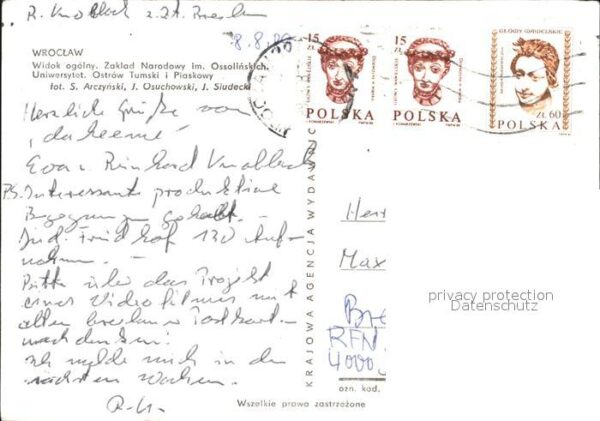 R. Knoblach z.Zt. Breslau
8.8.
WROCŁAW
Widok ogólny. Zakład Narodowy im. Ossolińskich.
Uniwersytet. Ostrów Tumski i Piaskowy
fot. S. Arczyński, J. Osuchowski, J. Siudecki
Herzliche Grüße von
"daheeme"
Eva u. Reinhard Knoblach
PS. Interessante produktive
Begegnungen gehabt. -
Jüd. Friedhof 130 Auf-
nahmen. -
Bitte über das Projekt
eines Videofilmes mit
alten Breslau Postkart.
nachdenken!
Ich melde mich in den
nächsten Wochen.
R. K.
15 ZŁ
POLSKA
15 ZŁ
POLSKA
GŁOWY WAWELSKIE
ZŁ 60
POLSKA
KRAJOWA AGENCJA WYDAWNICZA
Herr
Max
RFN
4000
privacy protection
Datenschutz
ozn. kod.
Wszelkie prawa zastrzeżone